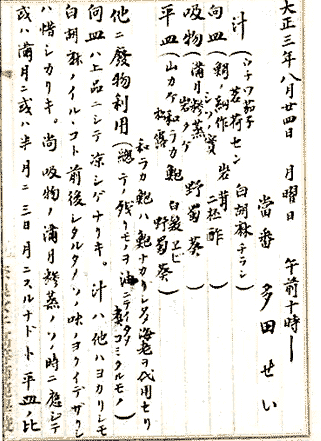 大正三年八月廿四日　月曜日　午前十時—
當番　多田せい
汁（ウチワ茄子 茗荷セン 白胡麻チラシ
向皿（鯛ノ刻作 ツマ 岩茸 二杯酢
吸物（満月糝薯蒸 岩タケ 野蜀葵）
平皿（山カケ和ラカ鮑 松露 白髪ヱビ 野蜀葵）
和ラカ鮑ハ鮑ナカリシタメ海老ヲ代用セリ
他ニ廢物利用（總テノ残リモノヲ油ニテイタメ コミクルモノ）
向皿ハ上品ニシテ涼シゲナリキ。汁ハ他ハヨカリシモ
白胡麻ノイルコト前後シタルタメソノ味ノヨクイデザリシ
ハ惜シカリキ。尚吸物ノ満月糝蒸ノソノ時ニ應ジテ
或ハ満月ニ或ハ半月ニ三日月ニスルナドト平皿ノ比